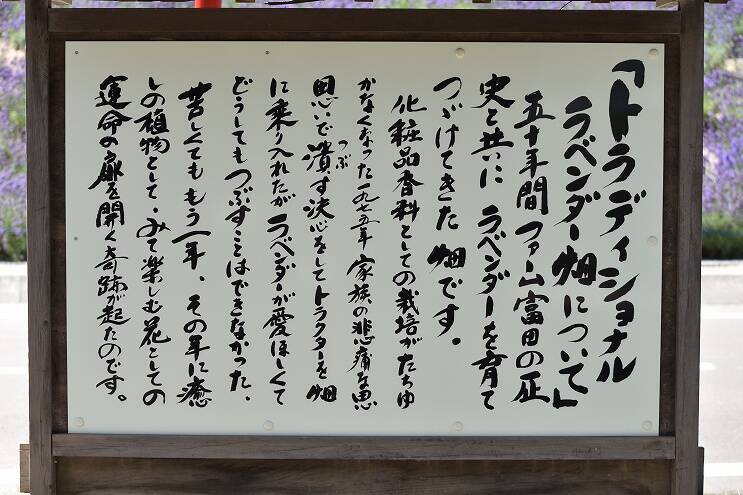 「トラディショナル
ラベンダー畑について」
五十年間 ファーム富田の歴
史と共に ラベンダーを育て
つづけてきた 畑です。
化粧品香料としての栽培がたちゆ
かなくなった一九七五年 家族の悲痛な思
思いで潰す決心をしてトラクターを畑
つぶ
に乗り入れたが ラベンダーが愛ほしくて
どうしてもつぶすことはできなかった、
苦しくてももう一年、その年に癒
しの植物として・みて楽しむ花としての
運命の扉を開く奇跡が起たのです。